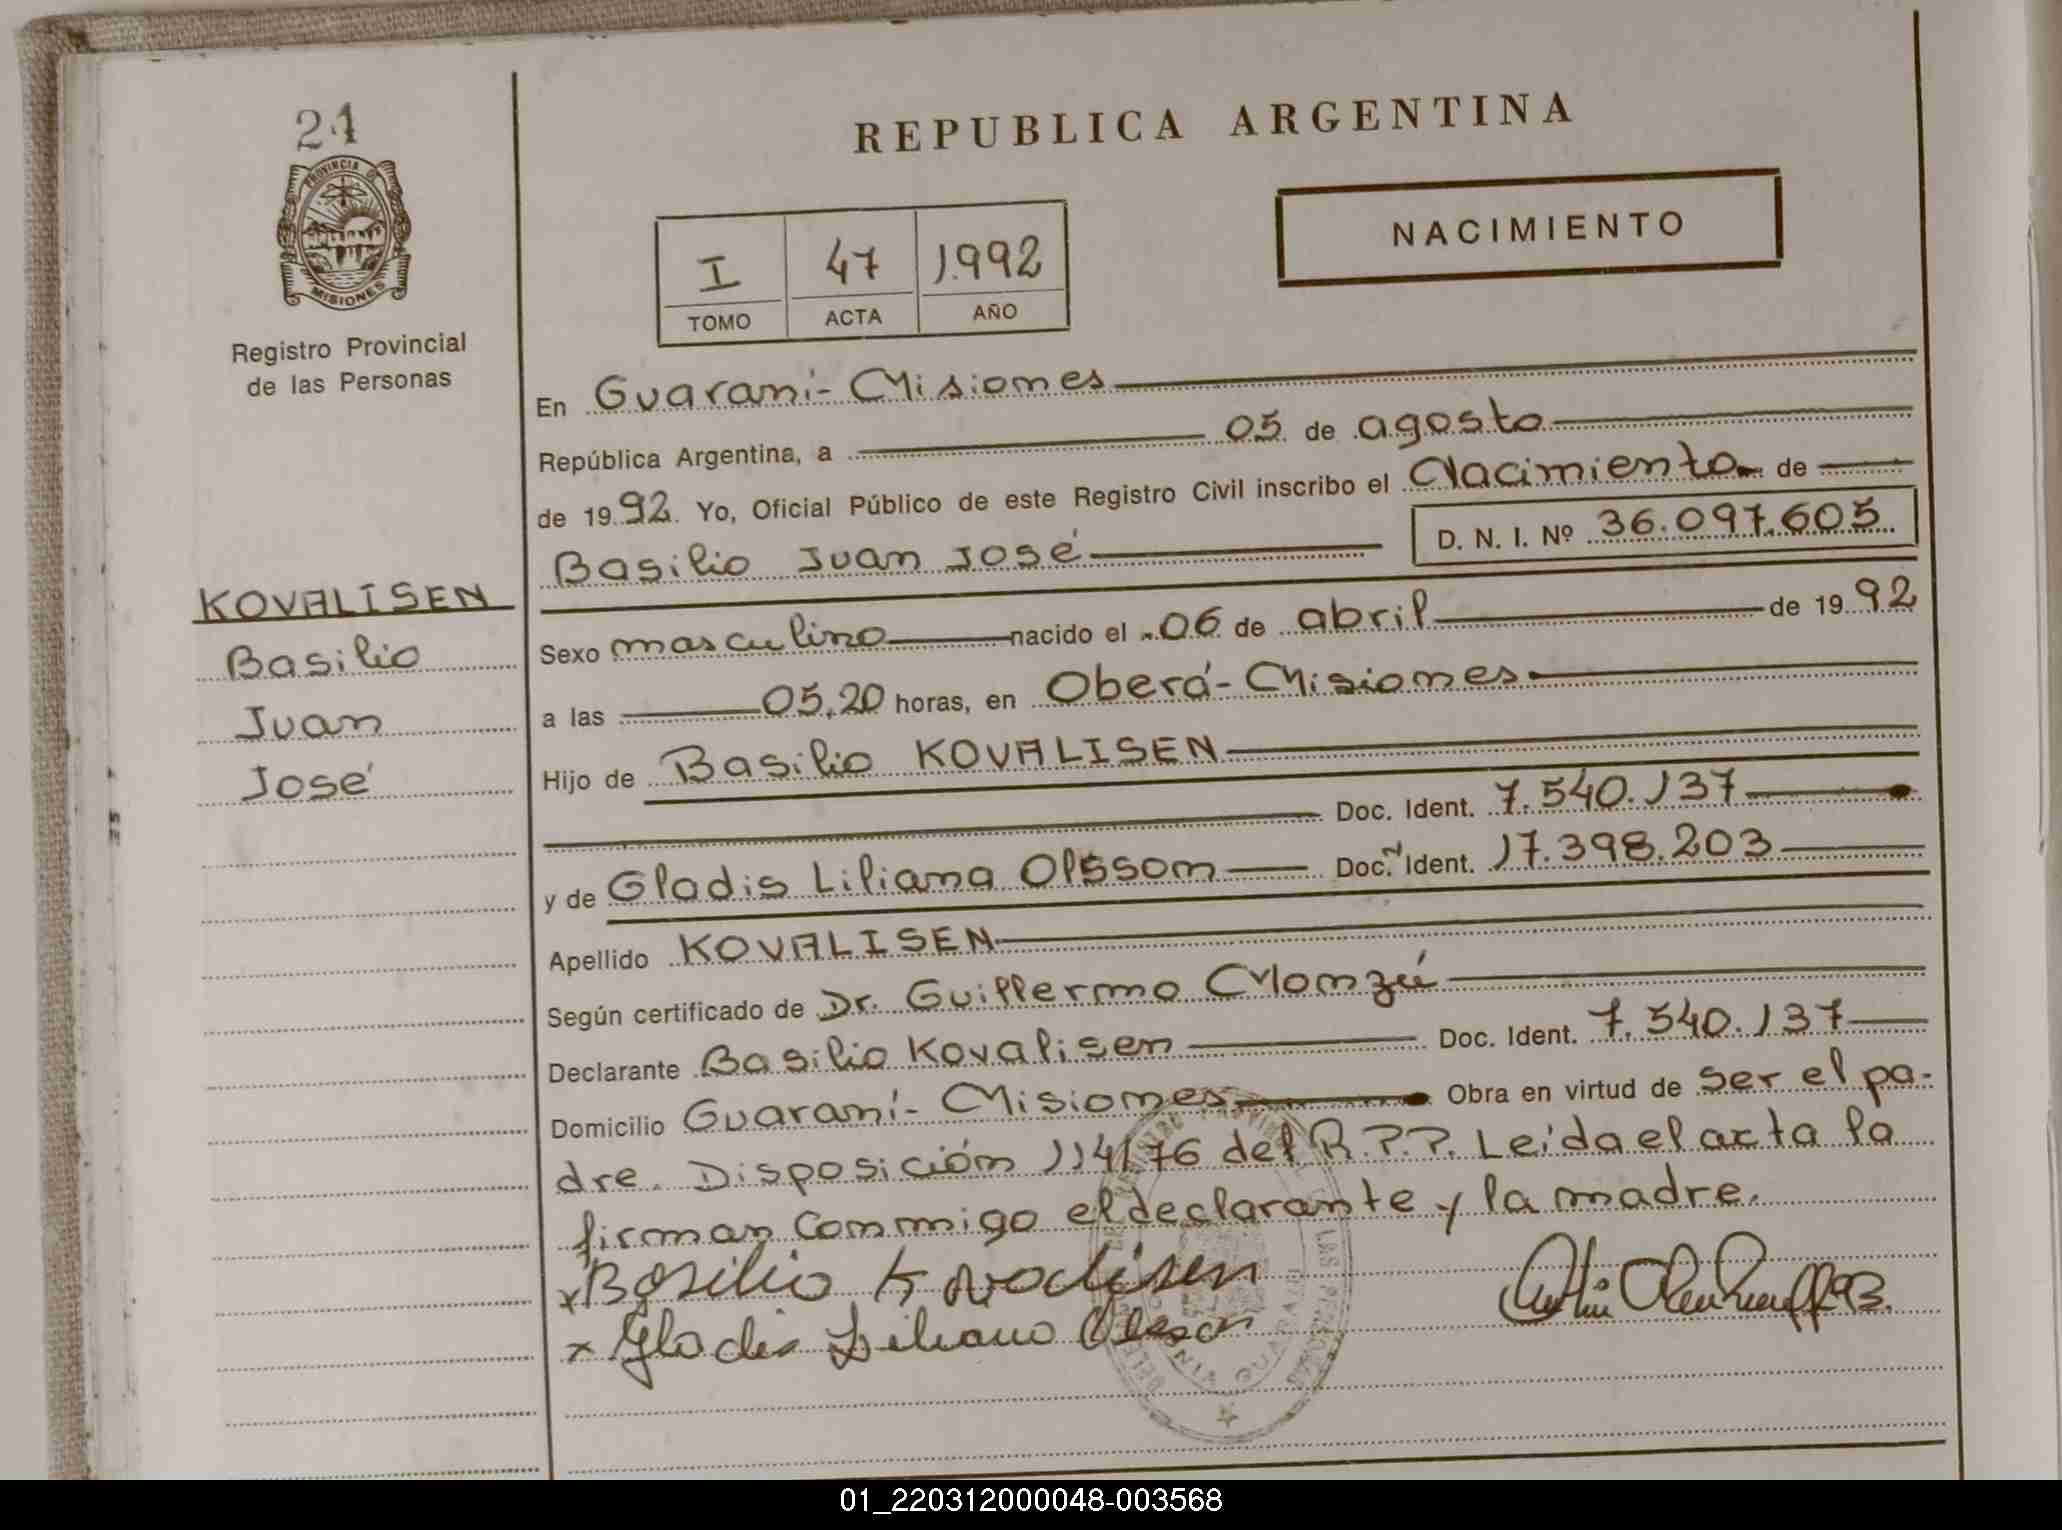 21
PROVINCIA DE
MISIONES
Registro Provincial
de las Personas
REPUBLICA ARGENTINA
NACIMIENTO
I 47 1.992
TOMO ACTA AÑO
En Guaraní - Misiones
República Argentina, a 05 de agosto
de 1992 Yo, Oficial Público de este Registro Civil inscribo el Nacimiento de
Basilio Juan José D. N. I. Nº 36.097.605
KOVALISEN
Basilio
Juan
José
Sexo masculino nacido el 06 de abril de 1992
a las 05,20 horas, en Oberá - Misiones
Hijo de Basilio KOVALISEN
Doc. Ident. 7.540.137
y de Gladis Liliana Olsson Doc. Ident. 17.398.203
Apellido KOVALISEN
Según certificado de Dr. Guillermo Monzú
Declarante Basilio Kovalisen Doc. Ident. 7.540.137
Domicilio Guaraní - Misiones Obra en virtud de ser el pa-
dre. Disposición 114/76 del R.P.P. Leída el acta la
firman conmigo el declarante y la madre.
x Basilio Kovalisen
x Gladis Liliana Olsson
01_220312000048-003568